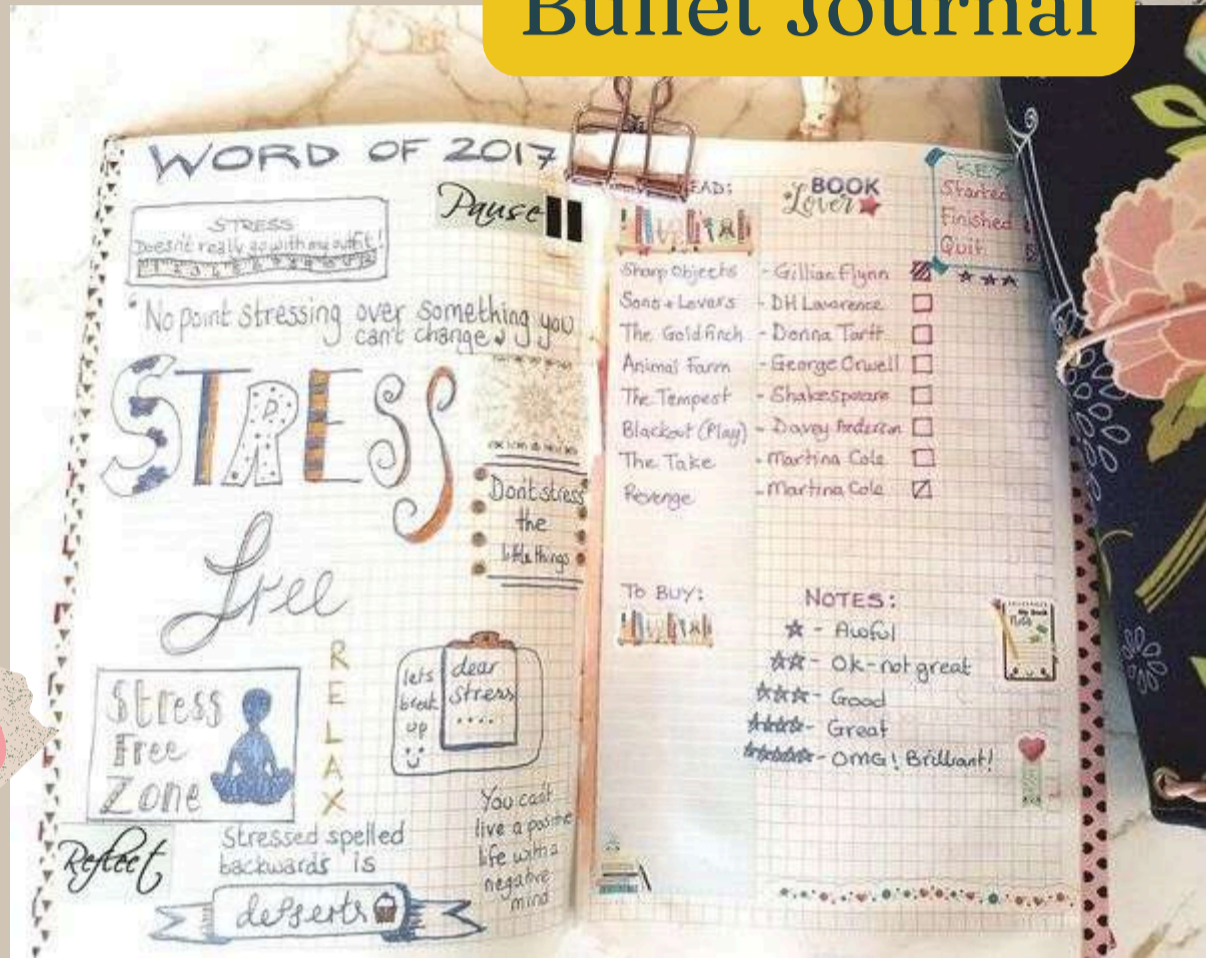 Bullet Journal
WORD OF 2017
Pause
STRESS
Doesn't really go with my outfit!
"No point stressing over something you
can't change
STRESS
free
Don't stress
the
little things
Stress
Free
Zone
RELAX
lets
break
up
dear
Stress
....
You can't
live a positive
life with a
negative
mind
Reflect
Stressed spelled
backwards is
desserts
BOOK
Lover
KEY
Started
Finished
Quit
Sharp Objects - Gillian Flynn
Sons + Lovers - DH Lawrence
The Goldfinch - Donna Tartt
Animal Farm - George Orwell
The Tempest - Shakespeare
Blackout (Play) - Davey Anderson
The Take - Martina Cole
Revenge - Martina Cole
TO BUY:
NOTES:
☆ - Awful
☆☆ - Ok-not great
☆☆☆ - Good
☆☆☆☆ - Great
☆☆☆☆☆ - OMG! Brilliant!